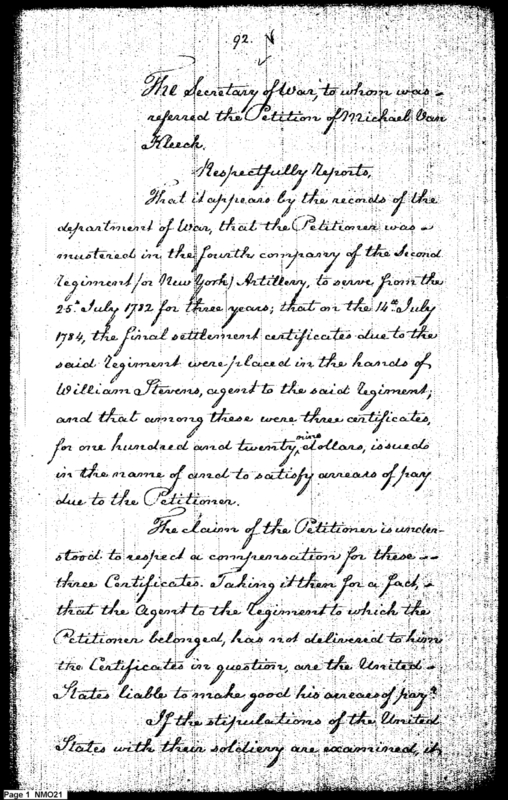 92.
The Secretary of War, to whom was
referred the Petition of Michael Van
Kleeck.
Respectfully Reports,
That it appears by the records of the
department of War, that the Petitioner was
mustered in the fourth company of the Second
regiment (or New York) Artillery, to serve from the
25th July 1782 for three years; that on the 14th July
1784, the final settlement certificates due to the
said regiment were placed in the hands of
William Stevens, agent to the said regiment;
and that among these were three certificates,
for one hundred and twenty nine dollars, issued
in the name of and to satisfy arrears of pay
due to the Petitioner.
The claim of the Petitioner is under-
stood to respect a compensation for these
three Certificates. Taking it then for a fact,
that the Agent to the regiment to which the
Petitioner belonged, has not delivered to him
the Certificates in question, are the United
States liable to make good his arrears of pay?
If the stipulations of the United
States with their soldiery are examined, it
Page 1 NMO21